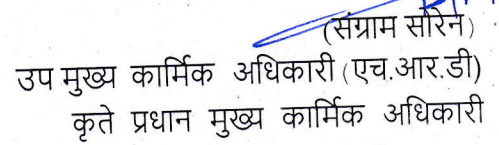 (संग्राम सोरेन)
उप मुख्य कार्मिक अधिकारी (एच.आर.डी)
कृते प्रधान मुख्य कार्मिक अधिकारी